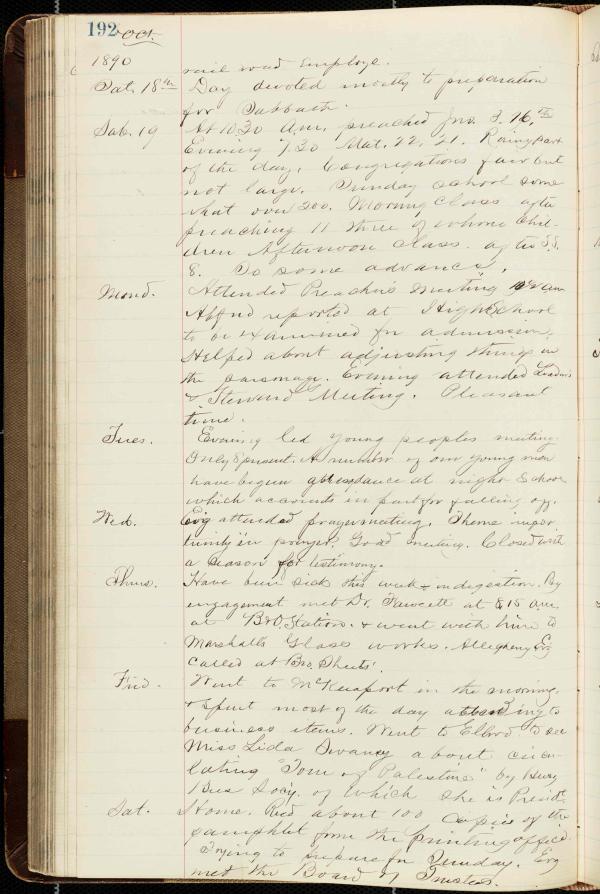 192 Oct.
1890 rail road Employe.
Sat. 18th Day devoted mostly to preparation
for Sabbath.
Sab. 19 At 10.30 A.m. preached Jno. 3. 16,
Evening 7.30 Mat. 22, 21. Rainy part
of the day. Congregations fair but
not large. Sunday School some
what over 200. Morning Class after
preaching 11 three of whom chil-
dren Afternoon Class. after S.S.
8. To some advance.
Mond. Attended Preacher's Meeting
Alfred reported at High School
to be examined for admission.
Helped about adjusting things in
the parsonage. Evening attended Leaders
& Steward's Meeting. Pleasant
time.
Tues. Evening led young peoples meeting.
Only 8 present. A number of our young men
have begun attendance at night School
which accounts in part for falling off.
Wed. Evg attended prayermeeting. Theme impor
tunity in prayer. Good meeting. Closed with
a season for testimony.
Thurs. Have been sick this week indigestion. By
engagement met Dr. Fawcett at 8 15 a.m.
at B&O Station. & went with him to
Marshalls Glass works. Allegheny Evg
called at Bro. Sheets'.
Frid. Went to McKeesport in the morning.
& spent most of the day attending to
business items. Went to to see
Miss Lida about circu-
lating "Tour of Palestine" by
Socy. of which she is Presidt.
Sat. Home. Recd about 100 copies of the
pamphlet from the printing office.
Trying to prepare for Sunday. Evg
met the Board of Trustees.